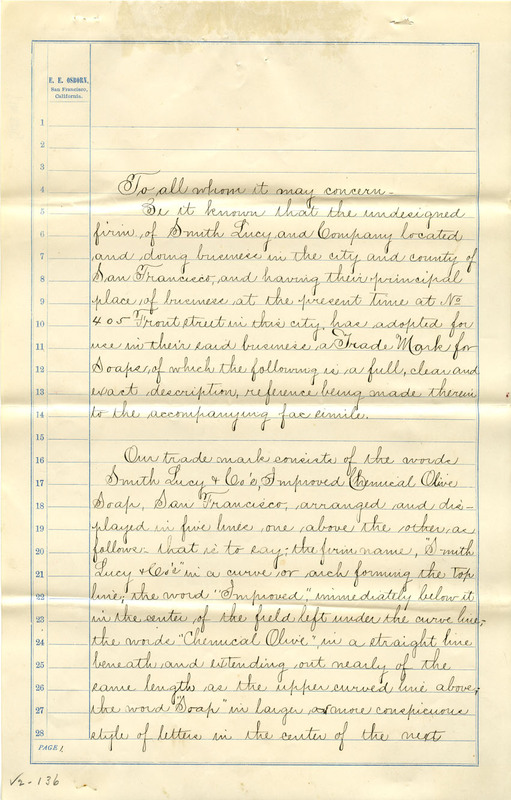 E. E. OSBORN,
San Francisco,
California.
1
2
3
4 To all whom it may concern-
5 Be it known that the undesigned
6 firm, of Smith Lucy and Company located
7 and doing business in the city and county of
8 San Francisco, and having their principal
9 place of business at the present time at No
10 405 Front street in this city, has adopted for
11 use in their said business a Trade Mark for
12 Soaps, of which the following is a full, clear and
13 exact description, reference being made therein
14 to the accompanying fac simile.
15
16 Our trade mark consists of the words
17 Smith Lucy & Co's, Improved Chemical Olive
18 Soap, San Francisco, arranged and dis-
19 played in five lines one above the other, as
20 follows- that is to say; the firm name, "Smith
21 Lucy & Co's" in a curve or arch forming the top
22 line; the word "Improved," immediately below it
23 in the center of the field left under the curve line;
24 the words "Chemical Olive", in a straight line
25 beneath and extending out nearly of the
26 same length as the upper curved line above;
27 the word "Soap" in larger & more conspicuous
28 style of letters in the center of the next
PAGE 1
√2-136